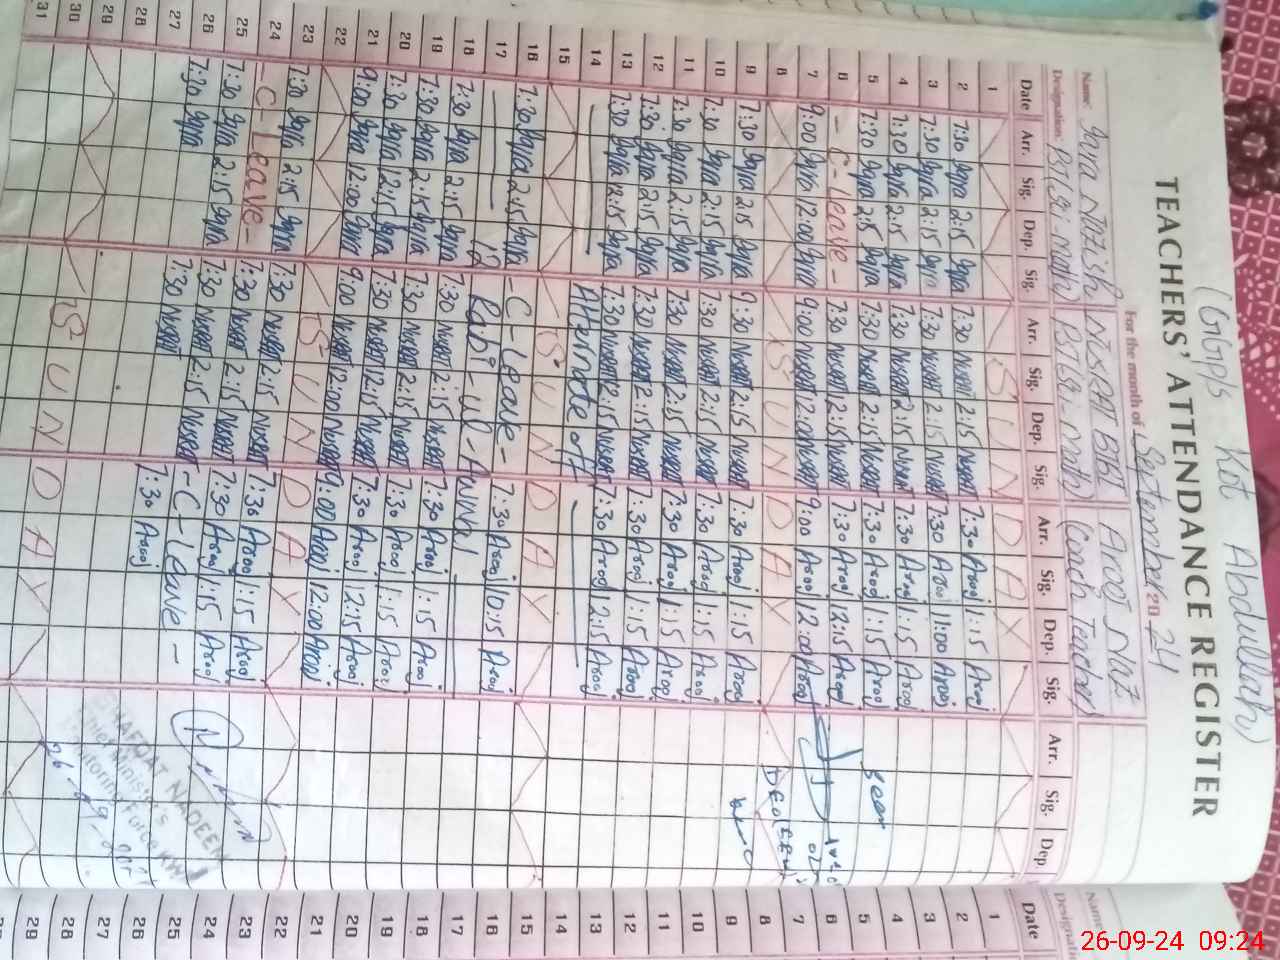 (GGPS Kot Abdullah)
TEACHERS' ATTENDANCE REGISTER
For the month of September 2024
Name: Iqra Nazish NUSRAT BIBI Arooj Naz
Designation: PST (Sci-math) PST (Sci-math) (Coach Teacher)
Date Arr. Sig. Dep. Sig. Arr. Sig. Dep. Sig. Arr. Sig. Dep. Sig. Arr. Sig. Dep.
1 S U N D A Y
2 7:30 Iqra 2:15 Iqra 7:30 Nusrat 2:15 Nusrat 7:30 Arooj 1:15 Arooj
3 7:30 Iqra 2:15 Iqra 7:30 Nusrat 2:15 Nusrat 7:30 Arooj 11:00 Arooj
4 7:30 Iqra 2:15 Iqra 7:30 Nusrat 2:15 Nusrat 7:30 Arooj 1:15 Arooj
5 7:30 Iqra 2:15 Iqra 7:30 Nusrat 2:15 Nusrat 7:30 Arooj 1:15 Arooj Seen
6 - C - Leave - 7:30 Nusrat 2:15 Nusrat 7:30 Arooj 12:15 Arooj
7 9:00 Iqra 12:00 Iqra 9:00 Nusrat 12:00 Nusrat 9:00 Arooj 12:00 Arooj
8 S U N D A Y
9 7:30 Iqra 2:15 Iqra 9:30 Nusrat 2:15 Nusrat 7:30 Arooj 1:15 Arooj
10 7:30 Iqra 2:15 Iqra 7:30 Nusrat 2:15 Nusrat 7:30 Arooj 1:15 Arooj
11 7:30 Iqra 2:15 Iqra 7:30 Nusrat 2:15 Nusrat 7:30 Arooj 1:15 Arooj
12 7:30 Iqra 2:15 Iqra 7:30 Nusrat 2:15 Nusrat 7:30 Arooj 1:15 Arooj
13 7:30 Iqra 12:15 Iqra 7:30 Nusrat 12:15 Nusrat 7:30 Arooj 12:15 Arooj
14 Alternate off
15 S U N D A Y
16 7:30 Iqra 2:15 Iqra - C - Leave - 7:30 Arooj 10:15 Arooj
17 12 Rabi-ul-Awwal
18 7:30 Iqra 2:15 Iqra 7:30 Nusrat 2:15 Nusrat 7:30 Arooj 1:15 Arooj
19 7:30 Iqra 2:15 Iqra 7:30 Nusrat 2:15 Nusrat 7:30 Arooj 1:15 Arooj
20 7:30 Iqra 12:15 Iqra 7:30 Nusrat 12:15 Nusrat 7:30 Arooj 12:15 Arooj
21 9:00 Iqra 12:00 Iqra 9:00 Nusrat 12:00 Nusrat 9:00 Arooj 12:00 Arooj
22 S U N D A Y
23 7:30 Iqra 2:15 Iqra 7:30 Nusrat 2:15 Nusrat 7:30 Arooj 1:15 Arooj
24 - C - Leave - 7:30 Nusrat 2:15 Nusrat 7:30 Arooj 1:15 Arooj
25 7:30 Iqra 2:15 Iqra 7:30 Nusrat 2:15 Nusrat - C - Leave -
26 7:30 Iqra 7:30 Nusrat 7:30 Arooj
27
28
29 S U N D A Y
30
31
NADEEM
Chief Minister's
Monitoring Force
Name
Designati
Date
1
2
3
4
5
6
7
8
9
10
11
12
13
14
15
16
17
18
19
20
21
22
23
24
25
26
27
28
29
26-09-24 09:24